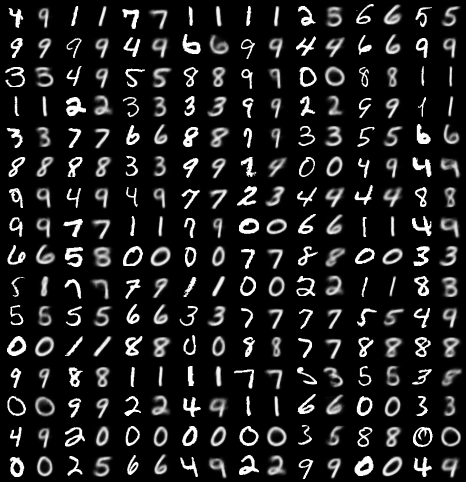 4 9 1 1 7 7 1 1 1 1 2 5 6 6 5 5
9 9 9 9 4 9 6 6 9 9 4 4 6 6 9 9
3 3 4 9 5 5 8 8 9 9 0 0 8 8 1 1
1 1 2 2 3 3 3 3 9 9 2 2 9 9 1 1
3 3 7 7 6 6 8 8 7 9 3 3 5 5 6 6
8 8 8 8 3 3 9 9 7 4 0 0 4 9 4 9
9 9 4 9 4 9 7 7 2 3 4 4 4 4 8 8
9 9 7 7 1 1 7 9 0 0 6 6 1 1 4 9
6 6 5 8 0 0 0 0 7 7 8 8 0 0 3 3
5 1 7 7 7 9 1 1 0 0 2 2 1 1 8 3
5 5 5 5 6 6 3 3 7 7 7 7 5 5 4 9
0 0 1 1 8 8 0 0 8 8 7 7 8 8 8 8
9 9 8 8 1 1 1 1 7 7 5 3 5 5 3 5
0 0 9 9 2 2 4 9 1 1 6 6 0 0 3 3
4 9 2 0 0 0 0 0 0 0 3 5 8 8 0 0
0 0 2 5 6 6 4 9 2 2 9 9 0 0 4 9